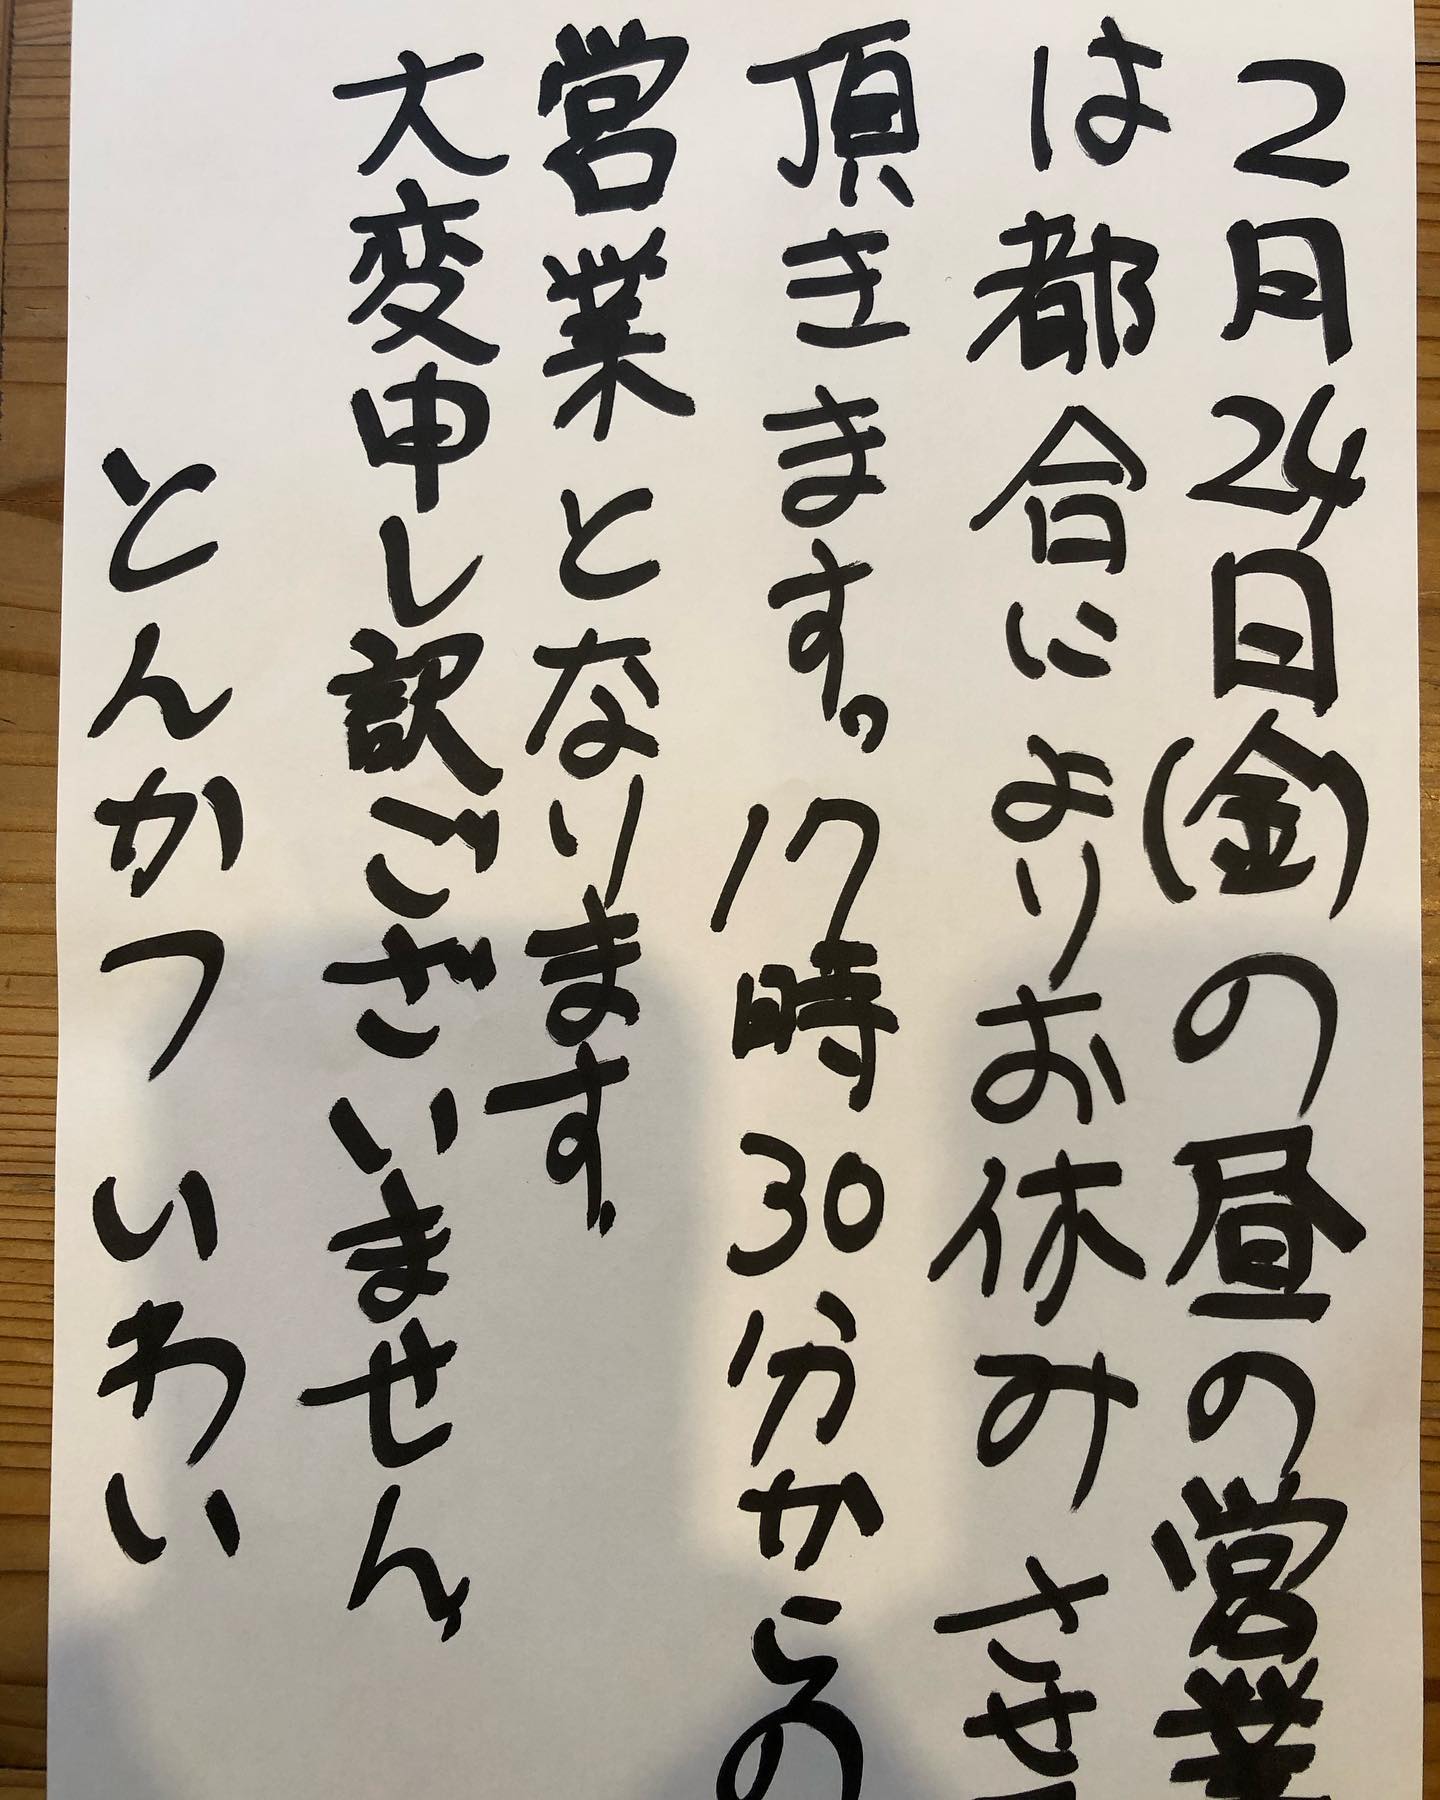 2月24日(金)の昼の営業
は都合によりお休みさせ
頂きます。17時30分からの
営業となります。
大変申し訳ございません。
とんかつ いわい